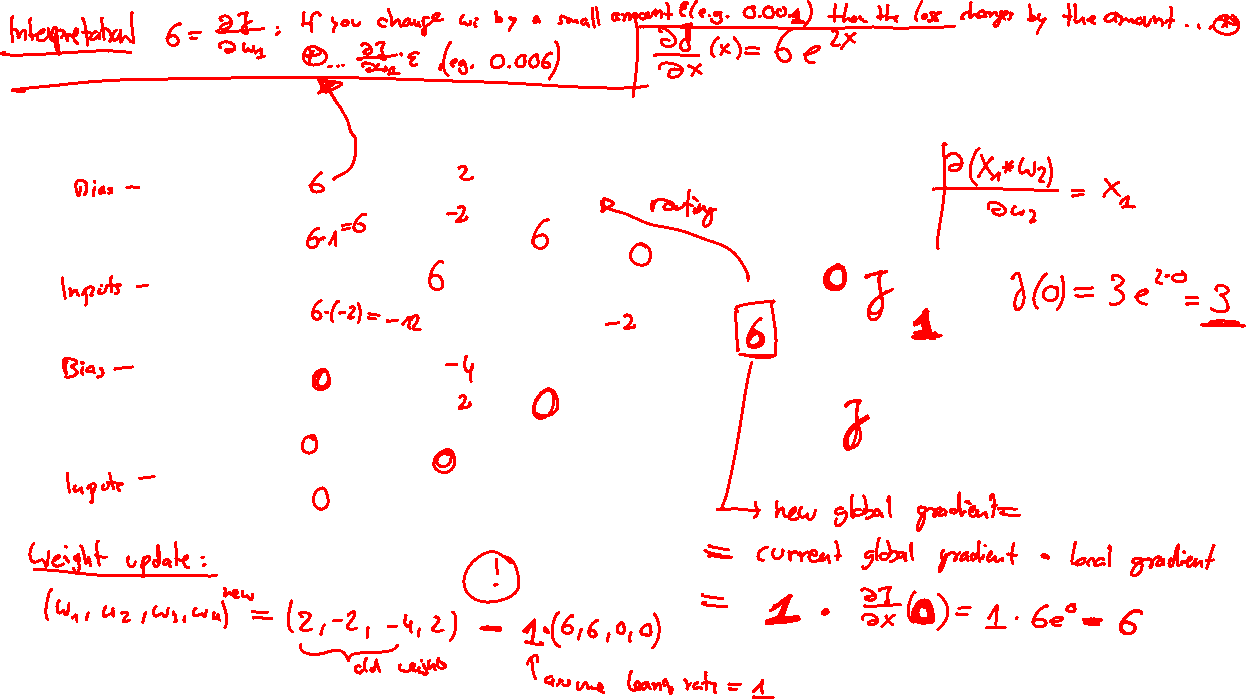 Interpretation 6 = ∂J/∂w₁ : If you change w₁ by a small amount ε (e.g. 0.001) then the loss changes by the amount ... (*)
(*) ... ∂J/∂w₁ · ε (e.g. 0.006)
∂J/∂x (x) = 6e^{2x}
Bias – 6 2
6·1=6 -2
routing
∂(x₁*w₂)/∂w₂ = x₁
6 0
Inputs – 6
0 J 1
J(0) = 3e^{2·0} = 3
6·(-2) = -12 -2 6
Bias – 0 -4
2 0 J
0 0
Inputs – 0
→ new global gradient =
= current global gradient · local gradient
= 1 · ∂J/∂x (0) = 1 · 6e⁰ = 6
Weight update : !
(w₁, w₂, w₃, w₄)^{new} = (2, -2, -4, 2) - 1·(6, 6, 0, 0)
old weights
↑ assume learning rate = 1